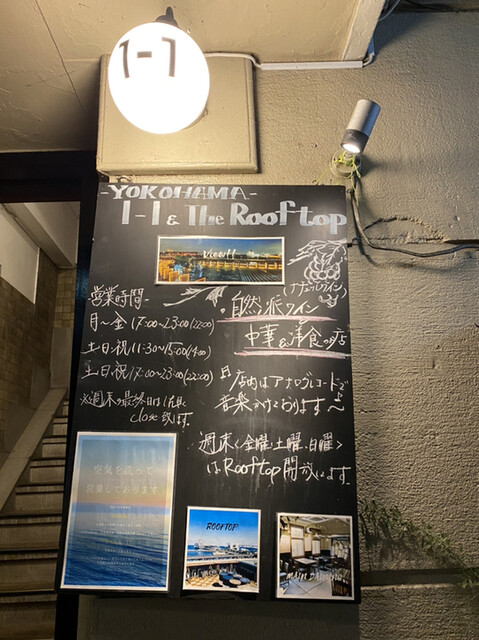 1-1
-YOKOHAMA-
1-1 & The Rooftop
View!!
営業時間-
月〜金 17:00~23:00(22:00)
土日祝 11:30~15:00(14:00)
土日祝 17:00~23:00(22:00)
close致します。
(ナチュラルワイン)
自然派ワイン
中華&洋食のお店
店内はアナログレコードで
音楽かけております〜
週末<金曜,土曜,日曜>
はRooftop開放します。
空気を洗って
営業しております
ROOFTOP
MAIN DINING